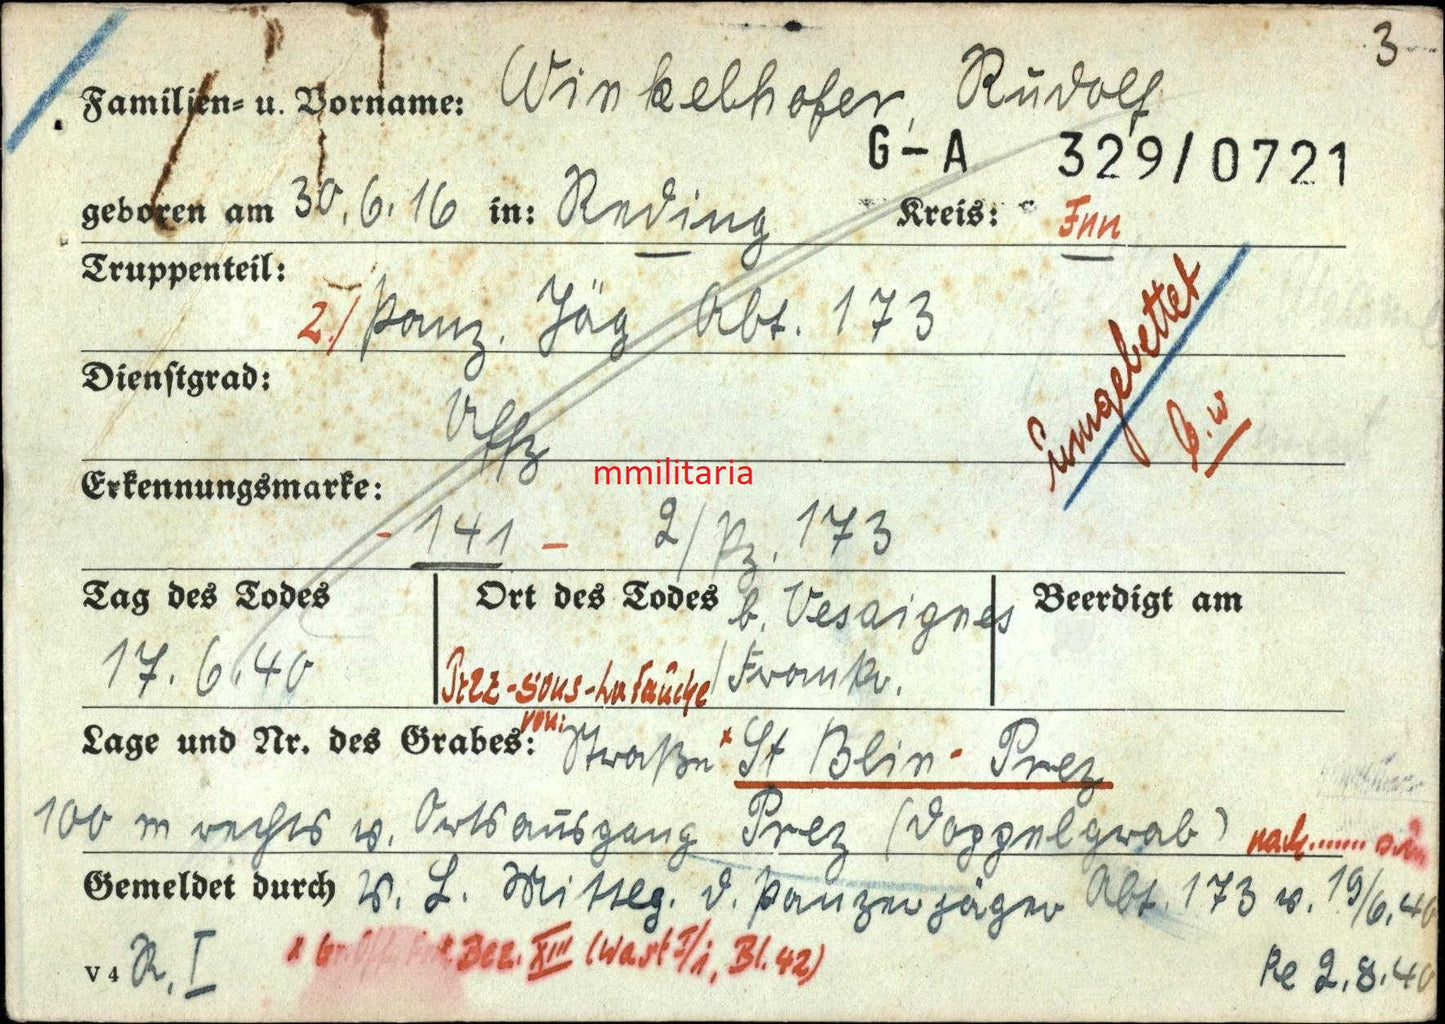 3
Familien- u. Vorname: Winkelhofer, Rudolf
G-A 329/0721
geboren am 30.6.16 in: Reding Kreis: Inn
Truppenteil:
2./ Panz. Jäg Abt. 173
Dienstgrad:
Uffz
umgebettet
G.w
mmilitaria
Erkennungsmarke:
- 141 - 2/Pz. 173
Tag des Todes Ort des Todes b. Vesaignes Beerdigt am
17.6.40 Prez-sous-Lafauche / Frankr.
Lage und Nr. des Grabes: von: Straße * St Blin - Prez
100 m rechts v. Ortsausgang Prez (Doppelgrab) nach
Gemeldet durch v. L. Mittlg. d. Panzerjäger Abt. 173 v. 19/6.40
V 4 R. I * Bez. XIII (Wast I/1, Bl. 42)
Re 2.8.40